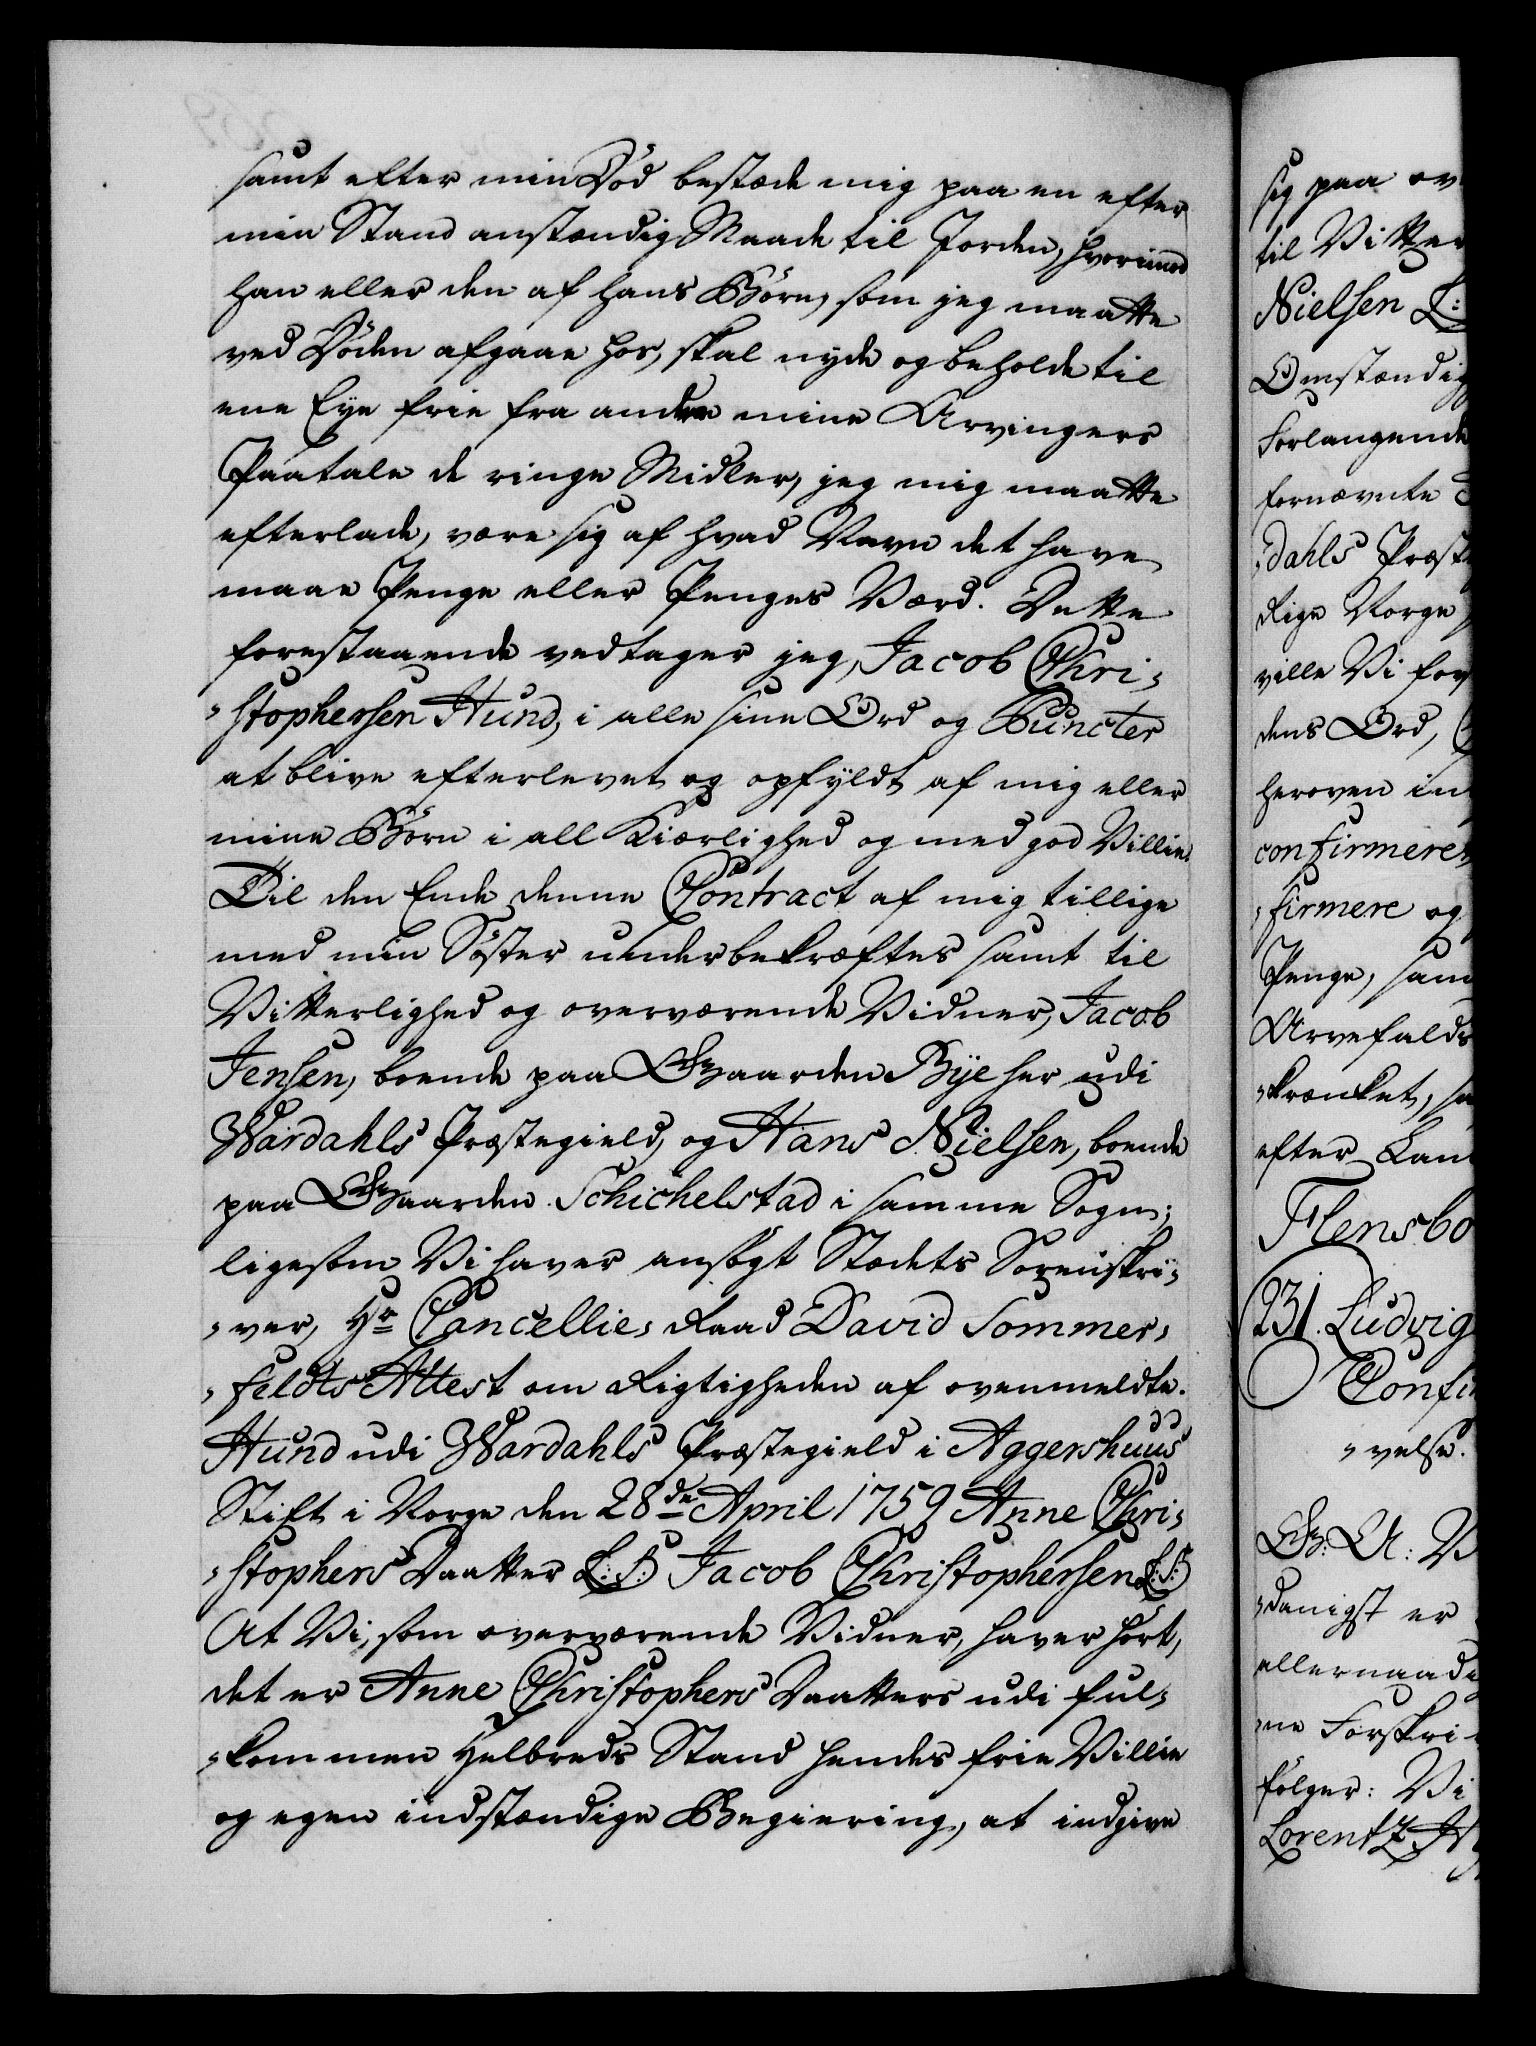 samt efter min Død bestæde mig paa en efter
min Stand anstændig Maade til Jorden, hvorimod
han eller den af hans Børn, som jeg maatte
ved Døden afgaae hos, skal nyde og beholde til
ene Eye frie fra andre mine Arvingers
Paatale de ringe Midler, jeg mig maatte
efterlade, være sig af hvad Navn det have
maae Penge eller Penges Værd. Dette
forestaaende vedtager jeg, Jacob Chri,
,stophersen Hund, i alle sine Ord og Puncter
at blive efterlevet og opfyldt af mig eller
mine Børn i all Kiærlighed og med god Villie.
Til den Ende denne Contract af mig tillige
med min Søster underbekræftes samt til
Vitterlighed og overværende Vidner, Jacob
Jensen, boende paa Gaarden Bÿe her udi
Wardahls Præstegield, og Hans Nielsen, boende
paa Gaarden Schichelstad i samme Sogn;
ligesom Vi haver ansøgt Stædets Sorenskri,
,ver, Hr Cancellie, Raad David Sommer,
,feldts Attest om Rigtigheden af ovenmeldte.
Hund udi Wardahls Præstegield i Aggershuus
Stift i Norge den 28de April 1759 Anne Chri,
,stophers Daatter L:S: Jacob Christophersen L:S:
At Vi, som overværende Vidner, haver hørt,
det er Anne Christophers Daatters udi ful,
,kommen Helbreds Stand hendes frie Villie
og egen indstændige Begiering, at indgive
sig paa ov
til Vitter
Nielsen L:
Omstændig
Forlangende
fornævnte
,dahls Præst
Rige Norge
ville Vi for
dens Ord,
heroven in
confirmere
,firmere og
Penge, sam
Arvefalds
,krænket, sa
efter Lan
Flensbo
231. Ludvig
Confi
,velse.
G: A: V
,danigst er
allernaadi
,ne Forskri
følger: Vi
Lorentz